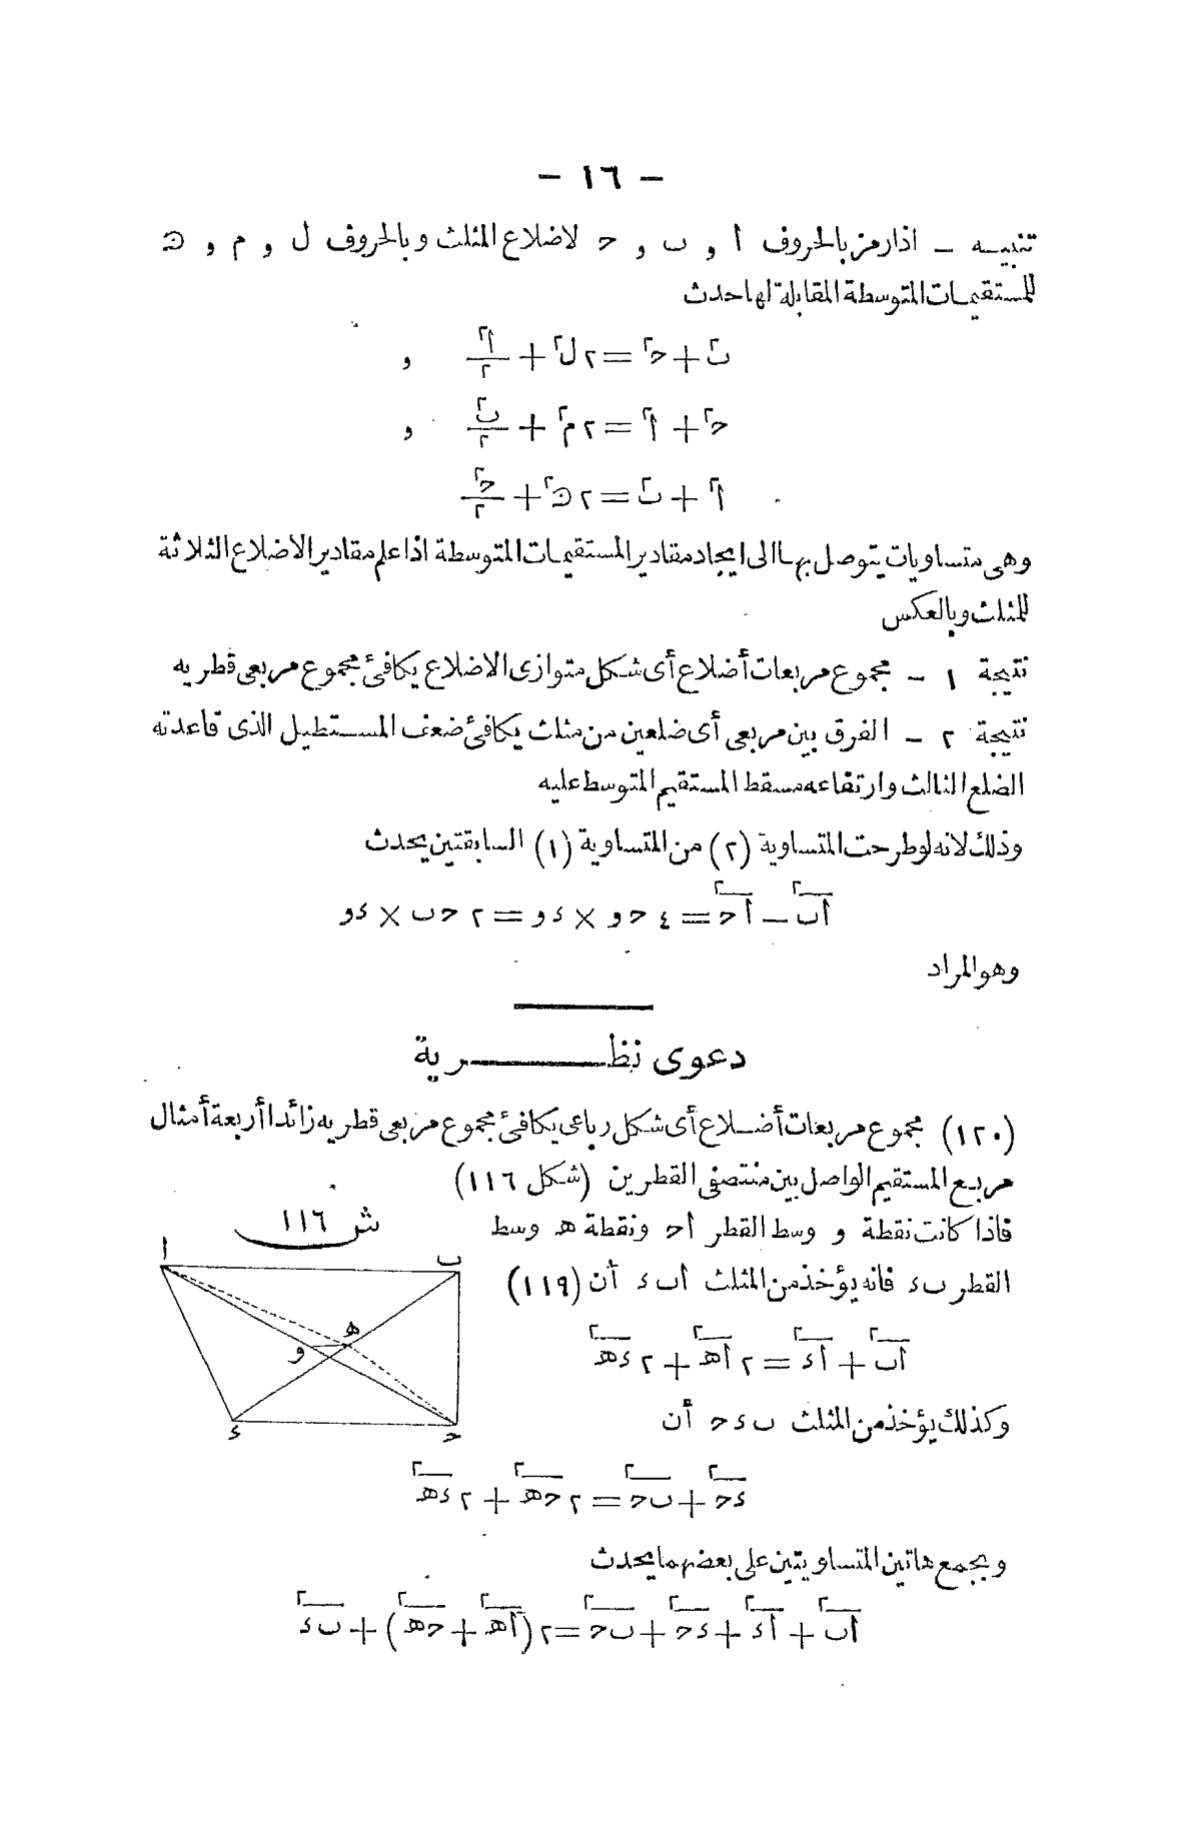 — ١٦ —
تنبيه — اذا رمز بالحروف أ و ب و ح لاضلاع المثلث وبالحروف ل و م و ن
للمستقيمات المتوسطة المقابلة لها حدث
ب٢ + ح٢ = ٢ ل٢ + أ٢/٢ و
ح٢ + أ٢ = ٢ م٢ + ب٢/٢ و
أ٢ + ب٢ = ٢ ن٢ + ح٢/٢
وهى متساويات يتوصل بها الى ايجاد مقادير المستقيمات المتوسطة اذا علم مقادير الاضلاع الثلاثة
للمثلث وبالعكس
نتيجة ١ — مجموع مربعات أضلاع أى شكل متوازى الاضلاع يكافئ مجموع مربعى قطريه
نتيجة ٢ — الفرق بين مربعى أى ضلعين من مثلث يكافئ ضعف المستطيل الذى قاعدته
الضلع الثالث وارتفاعه مسقط المستقيم المتوسط عليه
وذلك لانه لو طرحت المتساوية (٢) من المتساوية (١) السابقتين يحدث
أب٢ — أح٢ = ٤ ح و × ء و = ٢ ح ب × ء و
وهو المراد
دعوى نظرية
(١٢٠) مجموع مربعات أضلاع أى شكل رباعى يكافئ مجموع مربعى قطريه زائدا أربعة أمثال
مربع المستقيم الواصل بين منتصفى القطرين (شكل ١١٦)
فاذا كانت نقطة و وسط القطر أح ونقطة ه وسط
القطر ب ء فانه يؤخذ من المثلث أ ب ء أن (١١٩)
أب٢ + أء٢ = ٢ أه٢ + ٢ ءه٢
وكذلك يؤخذ من المثلث ب ء ح أن
ءح٢ + ب ح٢ = ٢ ح ه٢ + ٢ ءه٢
وبجمع هاتين المتساويتين على بعضهما يحدث
أب٢ + أء٢ + ءح٢ + ب ح٢ = ٢ (أه٢ + ح ه٢) + ب ء٢
ش ١١٦
أ
ب
ه
و
ء
ح